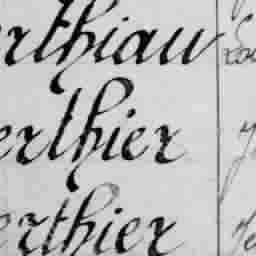 erthiau
erthier
erthier